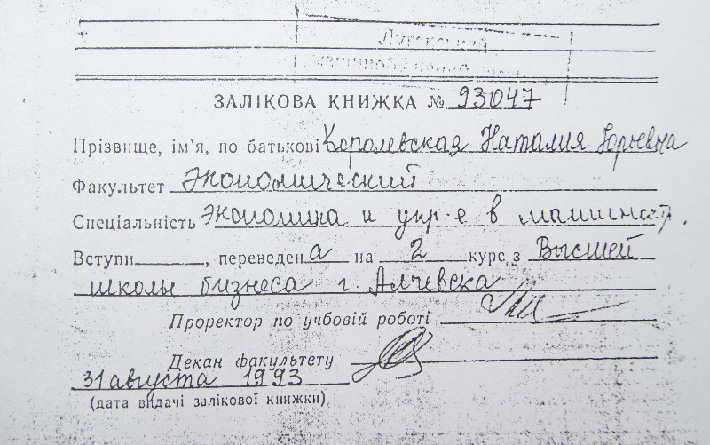 ЗАЛІКОВА КНИЖКА № 93047
Прізвище, ім'я, по батькові Королевская Наталия Юрьевна
Факультет Экономический
Спеціальність Экономика и упр-е в машиностр.
Вступи , переведена на 2 курс з Высшей
школы бизнеса г. Алчевска
Проректор по учбовій роботі
Декан факультету
31 августа 1993
(дата видачі залікової книжки)